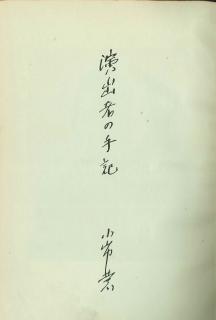 演出者の手記
小山内薫